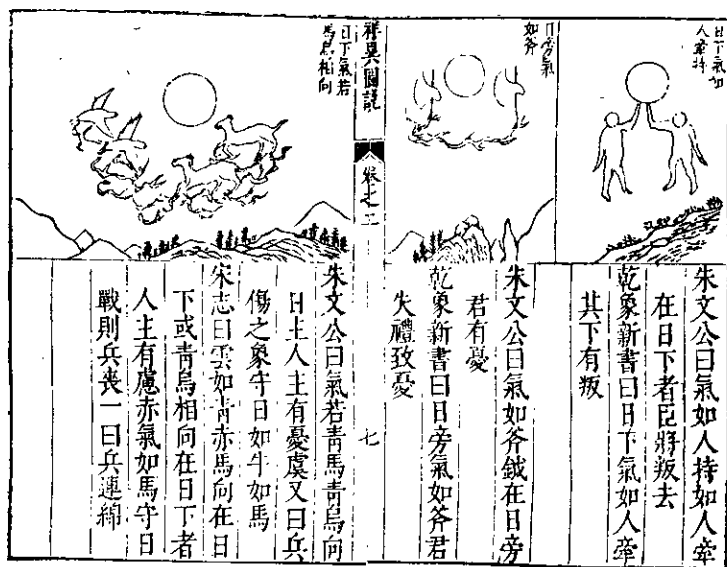 日下氣如
人牽持
朱文公曰氣如人持如人牽
在日下者臣將叛去
乾象新書曰日下氣如人牽
其下有叛
日旁氣
如斧
朱文公曰氣如斧鉞在日旁
君有憂
乾象新書曰日旁氣如斧君
失禮致憂
祥異圖說
卷之二
七
日下氣若
馬烏相向
朱文公曰氣若靑馬靑烏向
日主人主有憂虞又曰兵
傷之象守日如牛如馬
宋志曰雲如靑赤馬向在日
下或靑烏相向在日下者
人主有慮赤氣如馬守日
戰則兵喪一曰兵連綿